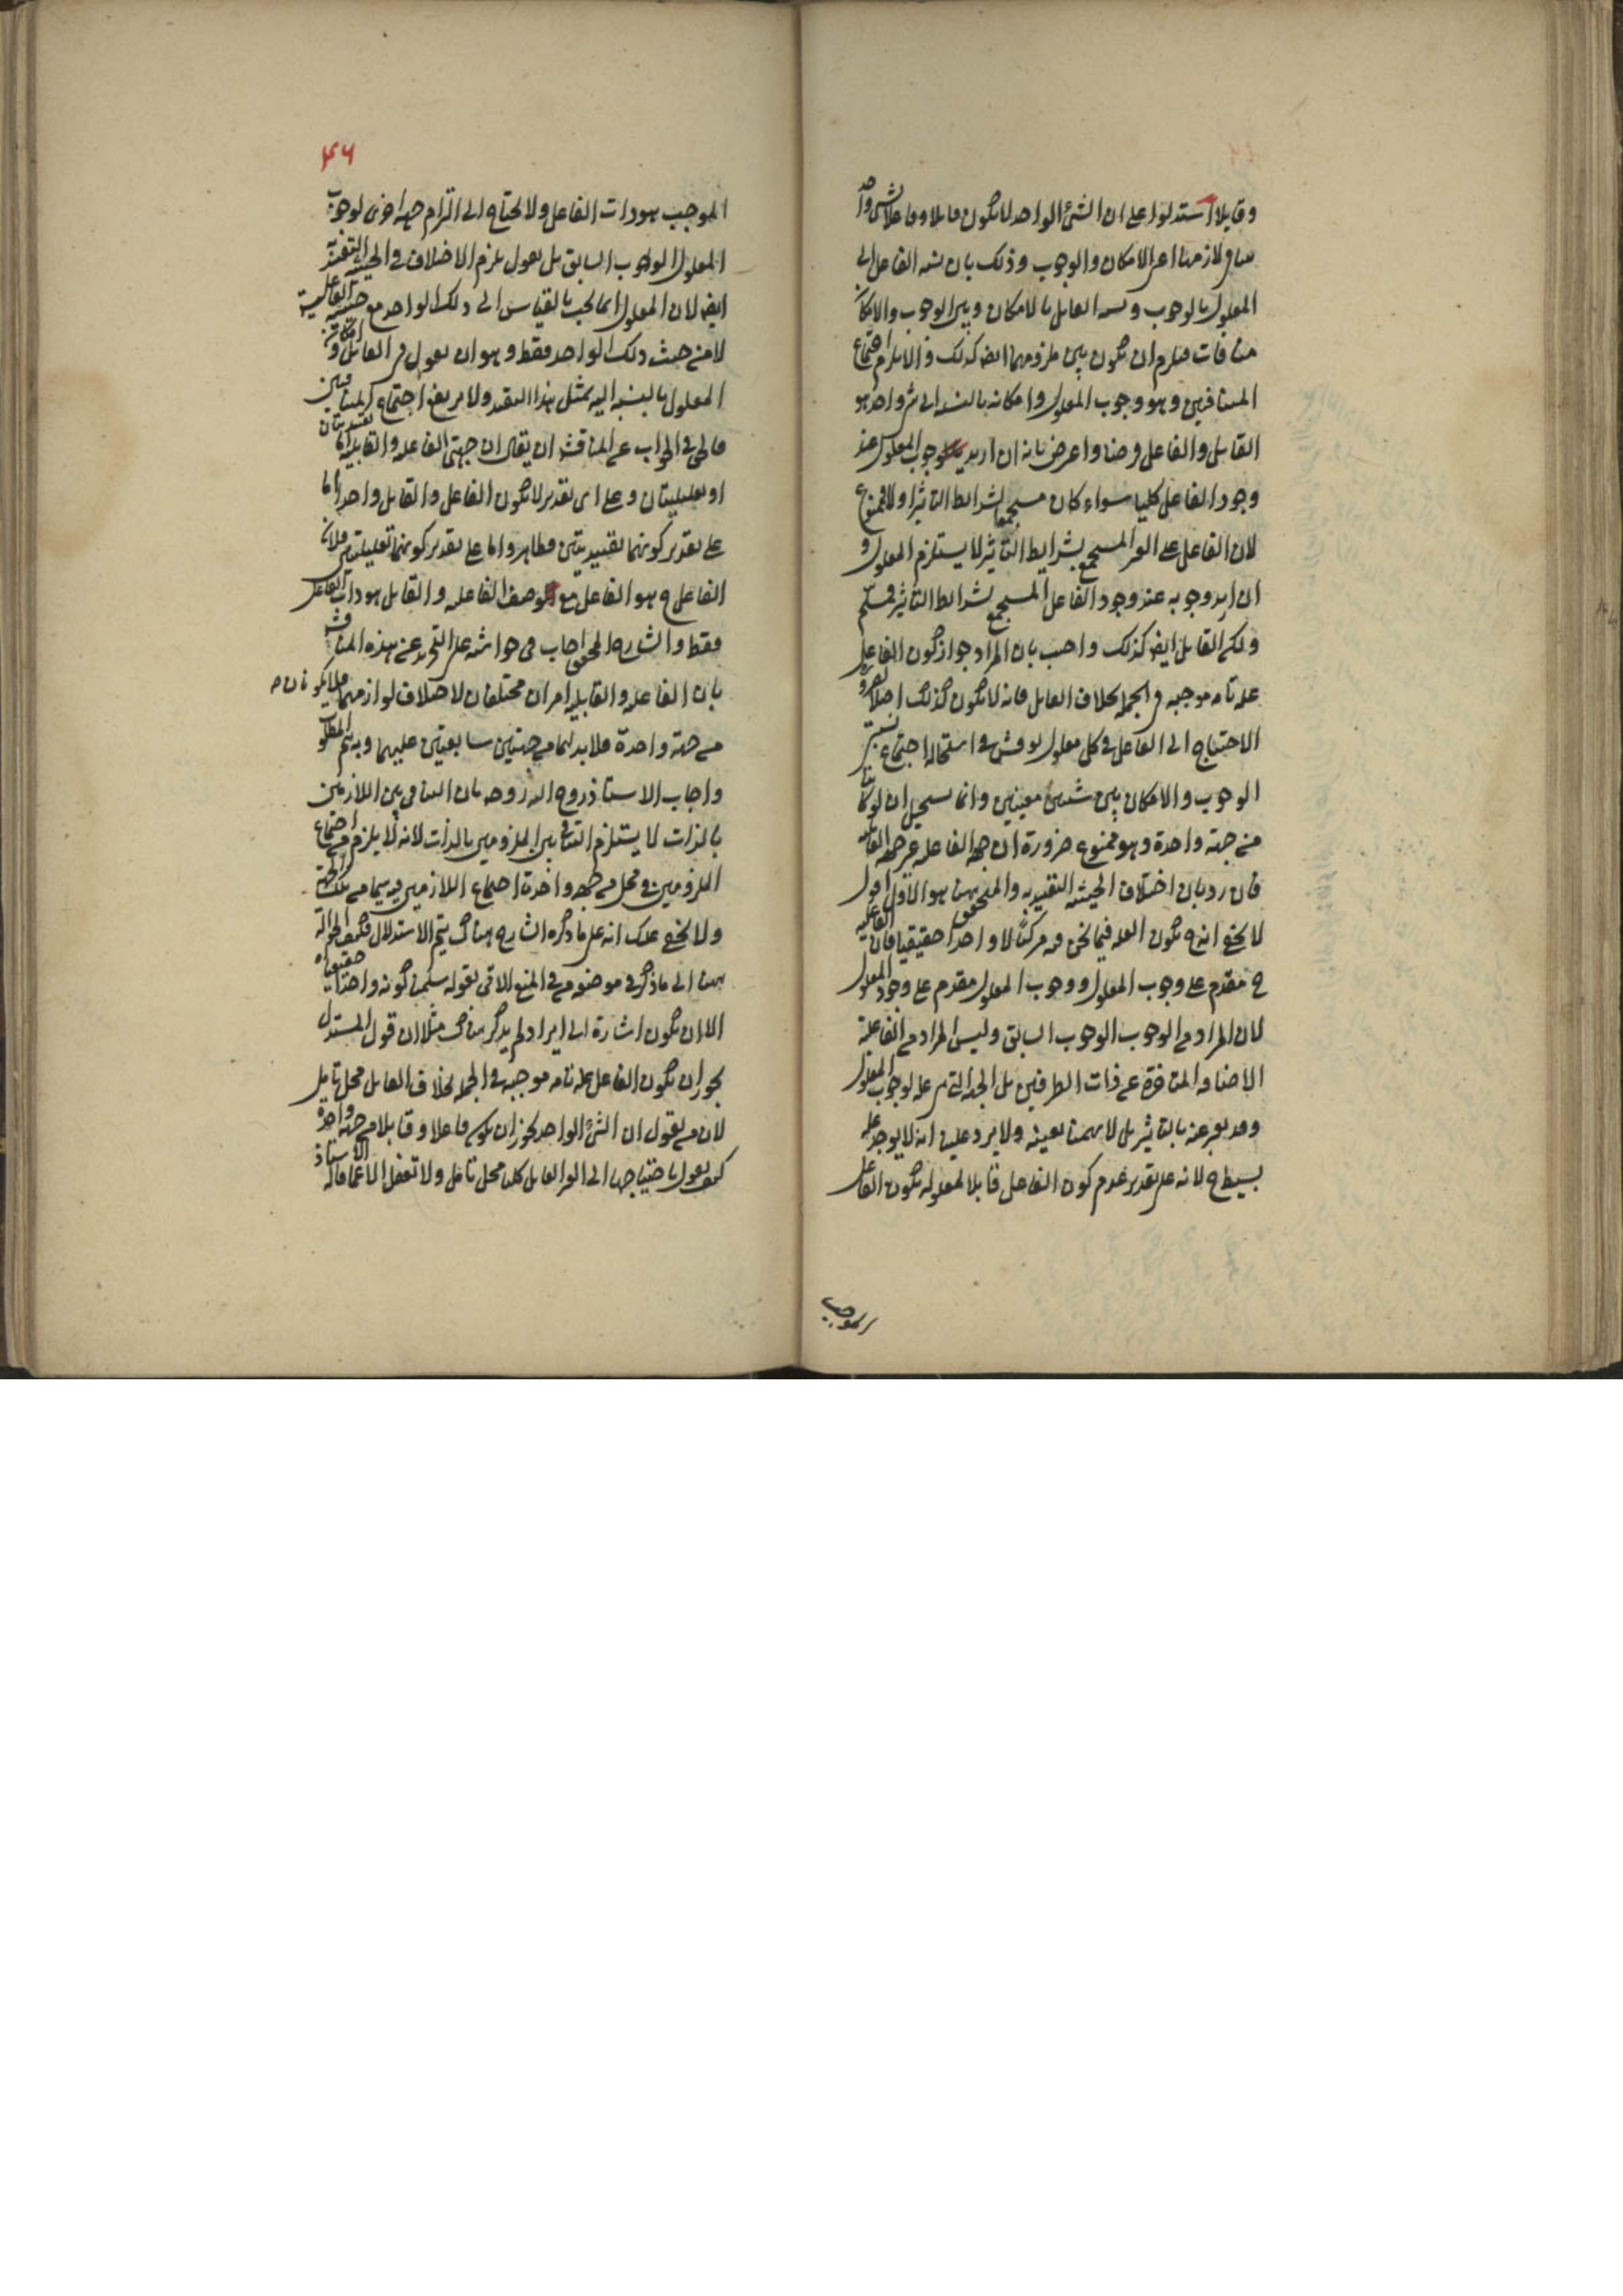 وقابلا استدلوا على ان الشئ الواحد لا يكون قابلا وفاعلا لشئ واحد
لازمهما اعنى الامكان والوجوب وذلك بان نسبة الفاعل الى
المعلول بالوجوب ونسبة القابل بالامكان وبين الوجوب والامكان
منافات فيلزم ان يكون بين ملزوميهما ايضا كذلك والا يلزم اجتماع
المتنافيين وهو وجوب المعلول وامكانه بالنسبة الى شئ واحد هو
القابل والفاعل فرضا واعترض بانه ان اريد وجوب المعلول عند
وجود الفاعل كليا سواء كان مستجمعا لشرايط التاثير اولا فممنوع
لان الفاعل الغير المستجمع بشرايط التاثير لا يستلزم المعلول و
ان اريد وجوبه عند وجود الفاعل المستجمع لشرايط التاثير فمسلم
ولكن القابل ايضا كذلك واجيب بان المراد جواز كون الفاعل
علة تامة موجبة فى الجملة بخلاف القابل فانه لا يكون كذلك اصلا لضرورة
الاحتياج الى الفاعل فى كل معلول نوقش فى استحالة اجتماع نسبتى
الوجوب والامكان بين شيئين معينين وانما يستحيل ان لو كانتا
من جهة واحدة وهو ممنوع ضرورة ان جهة الفاعلية غير جهة القابلية
فان رد بان اختلاف الحيثية التقييدية والمتحقق ههنا هو الاول اقول
لا يخفى انه ح يكون العلة فيما نحن فيه مركبا لا واحدا حقيقيا فان الفاعلية
ح مقدم على وجوب المعلول ووجوب المعلول مقدم على وجود المعلول
لان المراد من الوجوب الوجوب السابق وليس المراد من الفاعلية
الاضافة المتاخرة عن ذات الطرفين بل الجهة التى هى علة لوجوب المعلول
وقد يعبر عنه بالتاثير بل لا يهمنا تعيينه ولا يرد علينا انه لا يوجد علة
بسيطة ح لانه على تقدير عدم كون الفاعل قابلا لمعلوله يكون الفاعل
الموجب
٤٦
الموجب هو ذات الفاعل ولا يحتاج الى التزام جهة اخرى لوجوب
المعلول الوجوب السابق بل نقول يلزم الاختلاف فى الحيثية التقييدية
ايضا لان المعلول انما يجب بالقياس الى ذلك الواحد مع حيثية الفاعلية
لا من حيث ذلك الواحد فقط وهو ان نقول فى القابل و امكانية
المعلول بالنسبة اليه بمثل هذا التقييد ولا يرفع اجتماع المتنافيين
فالحق فى الجواب عن المناقشة ان يقال ان جهتى الفاعلية والقابلية اما تقييديتان
او تعليليتان وعلى اى تقدير لا يكون الفاعل والقابل واحدا اما
على تقدير كونهما تقييديتين فظاهر واما على تقدير كونهما تعليليتين فلان
الفاعل ح هو الفاعل مع وصف الفاعلية والقابل هو ذات الفاعل
فقط والشارح المحقق اجاب فى حواشيه على التجريد عن هذه المناقشة
بان الفاعلية والقابلية امران مختلفان لاختلاف لوازمهما فلا يكونان
من جهة واحدة فلا بد لهما من جهتين سابقتين عليهما وبه يتم المطلوب
واجاب الاستاذ روح الله روحه بان التنافى بين اللازمين
بالذات لا يستلزم التنافى بين الملزومين بالذات لانه لا يلزم من اجتماع
الملزومين فى محل من جهة واحدة اجتماع اللازمين فيه سيما من تلك الجهة
ولا يخفى عليك انه على ما ذكره الشارح هناك يتم الاستدلال فكيف الحوالة
ههنا الى ما ذكر فى موضعه من المنع الاتى بقوله سلمنا كونه واحدا حقيقيا
الا ان يكون اشارة الى ايراد لم يذكر هناك مثلا ان قول المستدل
يجوز ان يكون الفاعل علة تامة موجبة فى الجملة بخلاف القابل محل تامل
لان من يقول ان الشئ الواحد يجوز ان يكون فاعلا وقابلا من جهة واحدة
كيف يقول باحتياجها الى القابل كليا محل تامل ولا تغفل الا عما قاله الاستاذ